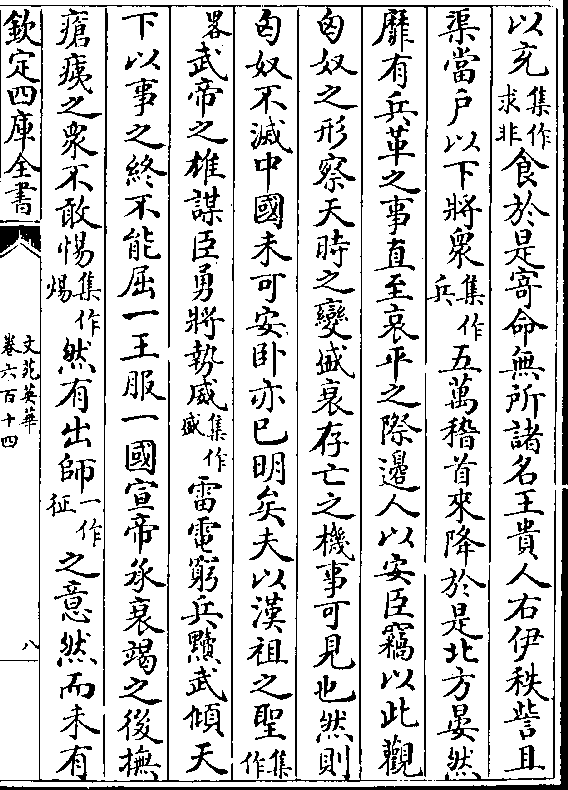 以充集作求非食於是寄命無所諸名王貴人右伊秩訾且
渠當戶以下將衆集作兵五萬稽首來降於是北方晏然
靡有兵革之事直至哀平之際邊人以安臣竊以此觀
匈奴之形察天時之變盛衰存亡之機事可見也然則
匈奴不滅中國未可安卧亦已明矣夫以漢祖之聖集作
畧武帝之雄謀臣勇將勢威集作盛雷電窮兵黷武傾天
下以事之終不能屈一王服一國宣帝承衰竭之後撫
瘡痍之衆不敢惕集作焬然有出師一作征之意然而未有
欽定四庫全書
文苑英華
卷六百十四
八